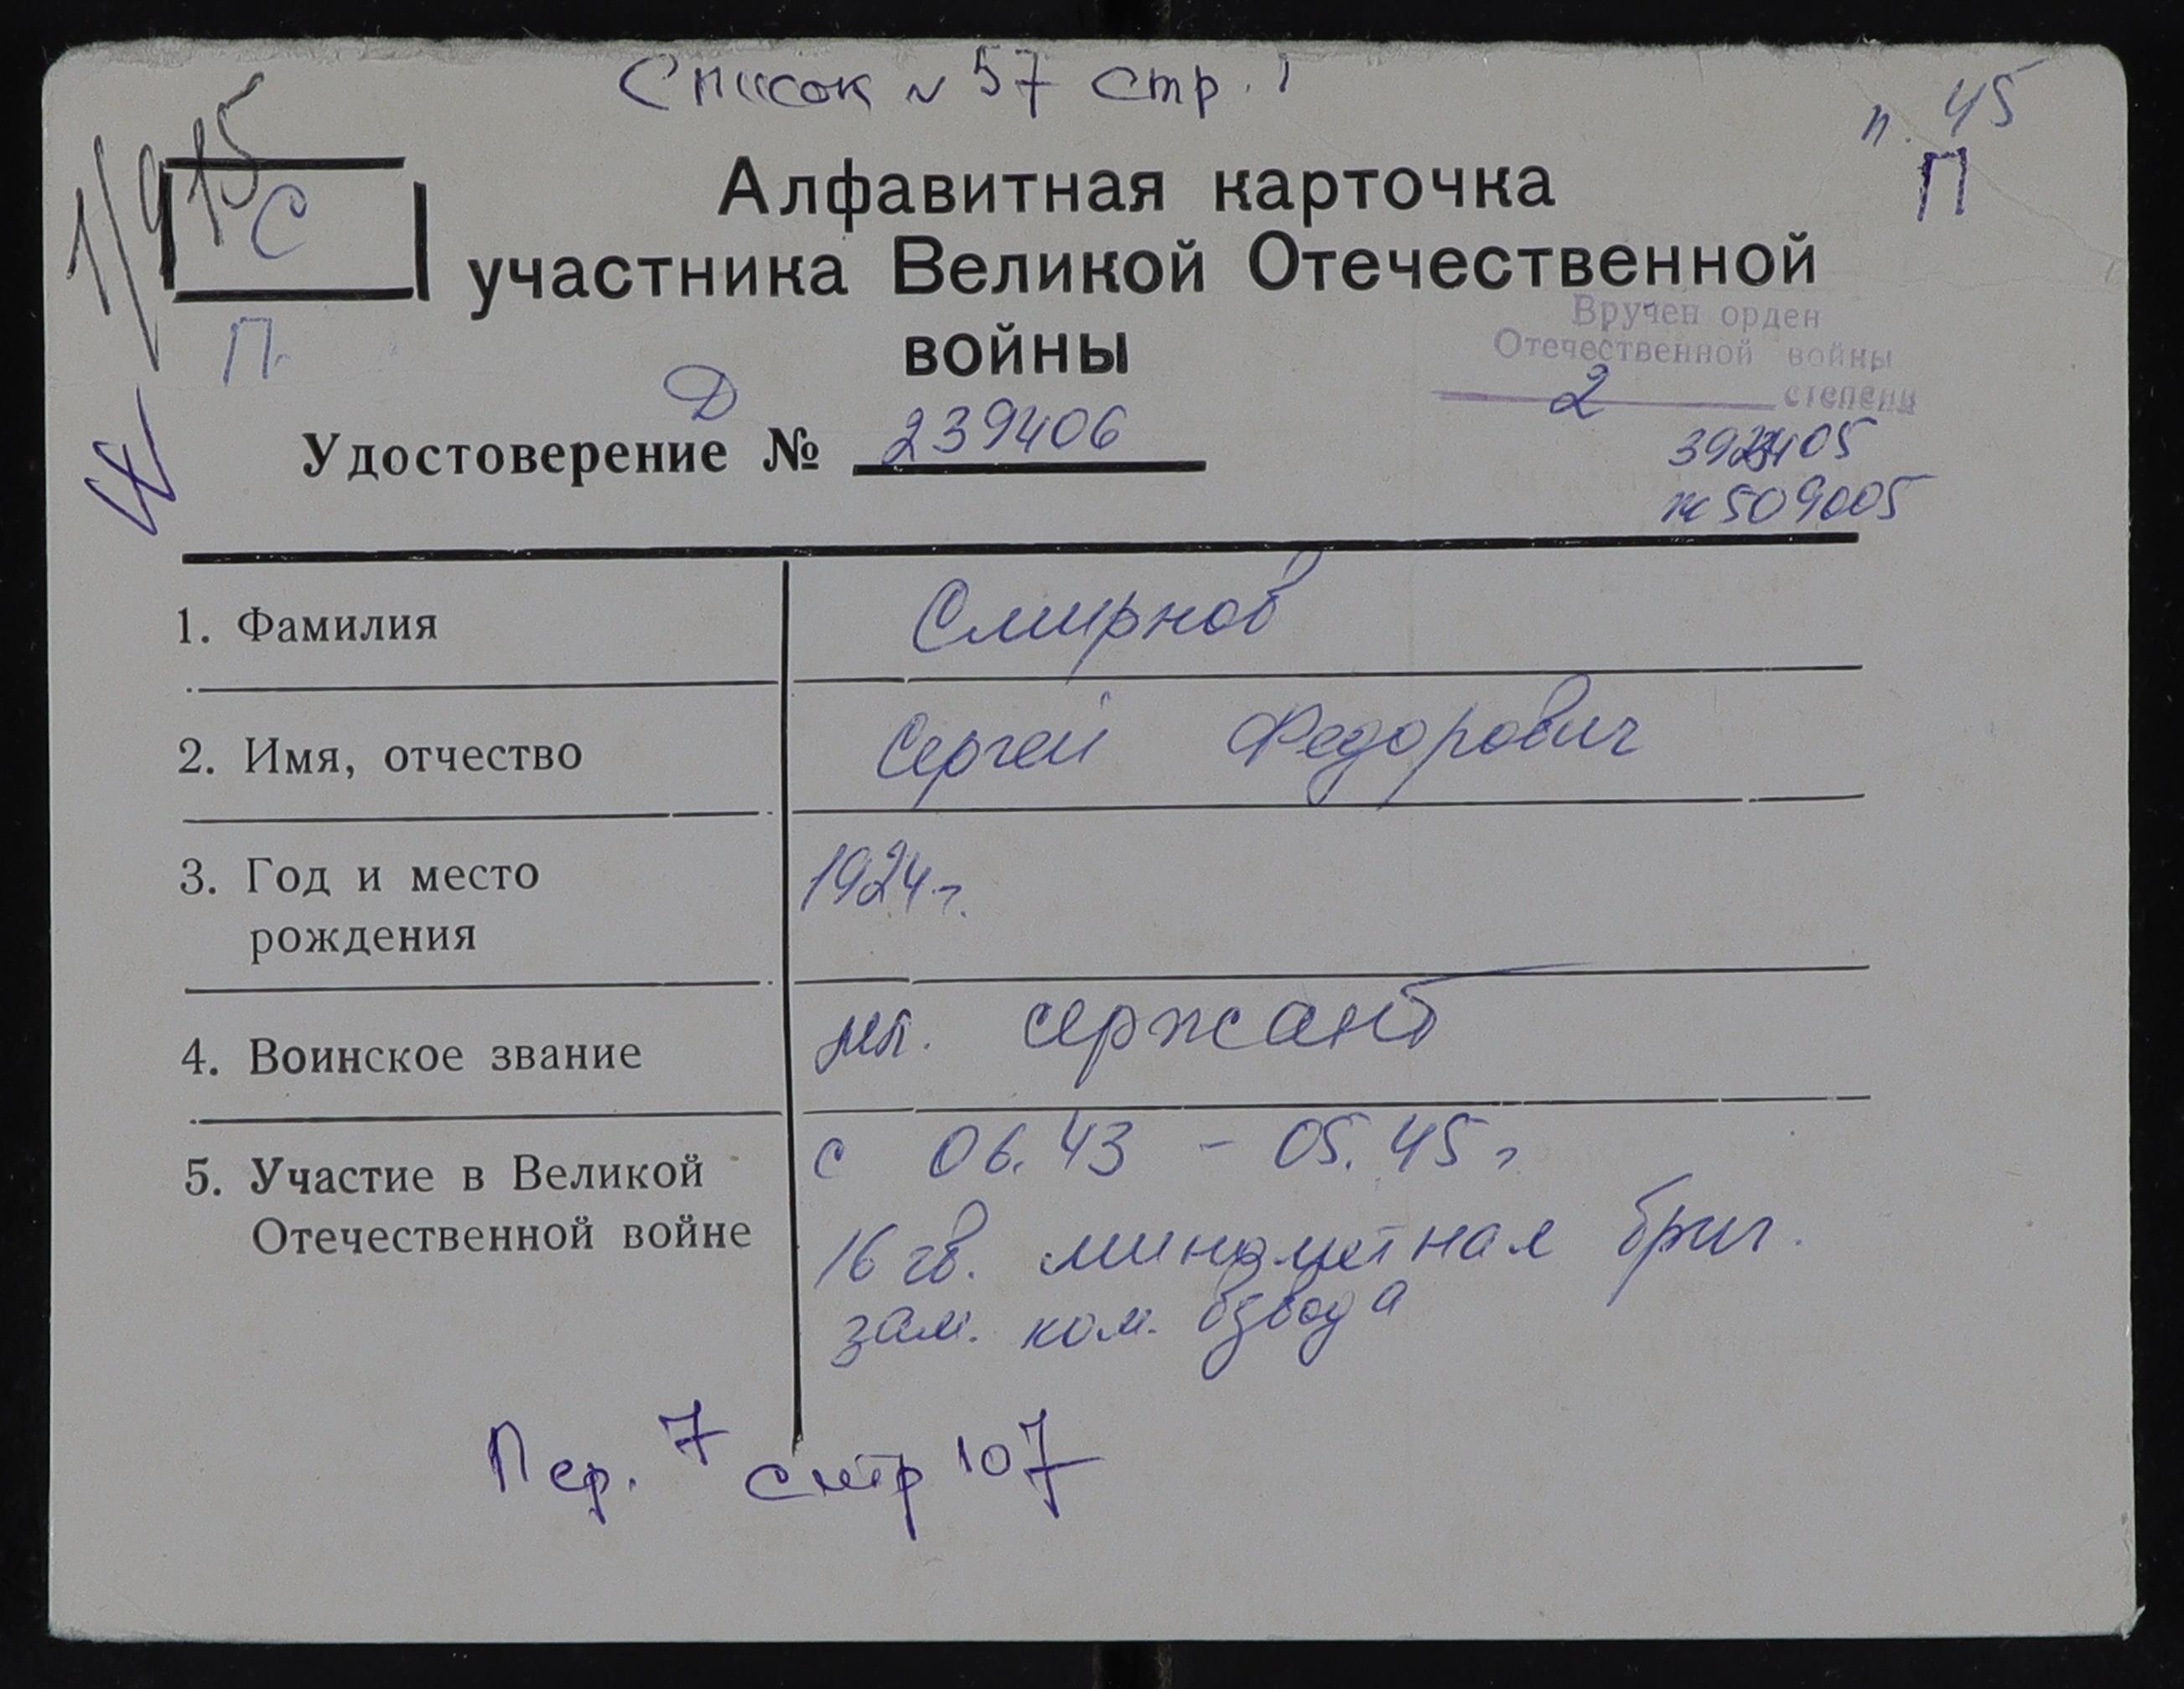 Список N 57 стр. 1
п. 45
П
1/915
С
Алфавитная карточка
участника Великой Отечественной
войны
П.
Вручен орден
Отечественной войны
2 степени
Д
Удостоверение № 239406
ж 509005
1. Фамилия Смирнов
2. Имя, отчество Сергей Федорович
3. Год и место
рождения
1924 г.
4. Воинское звание мл. сержант
5. Участие в Великой
Отечественной войне
с 06.43 - 05.45 г
16 гв. минометная бриг.
зам. ком. взвода
Пер. 7 стр 107